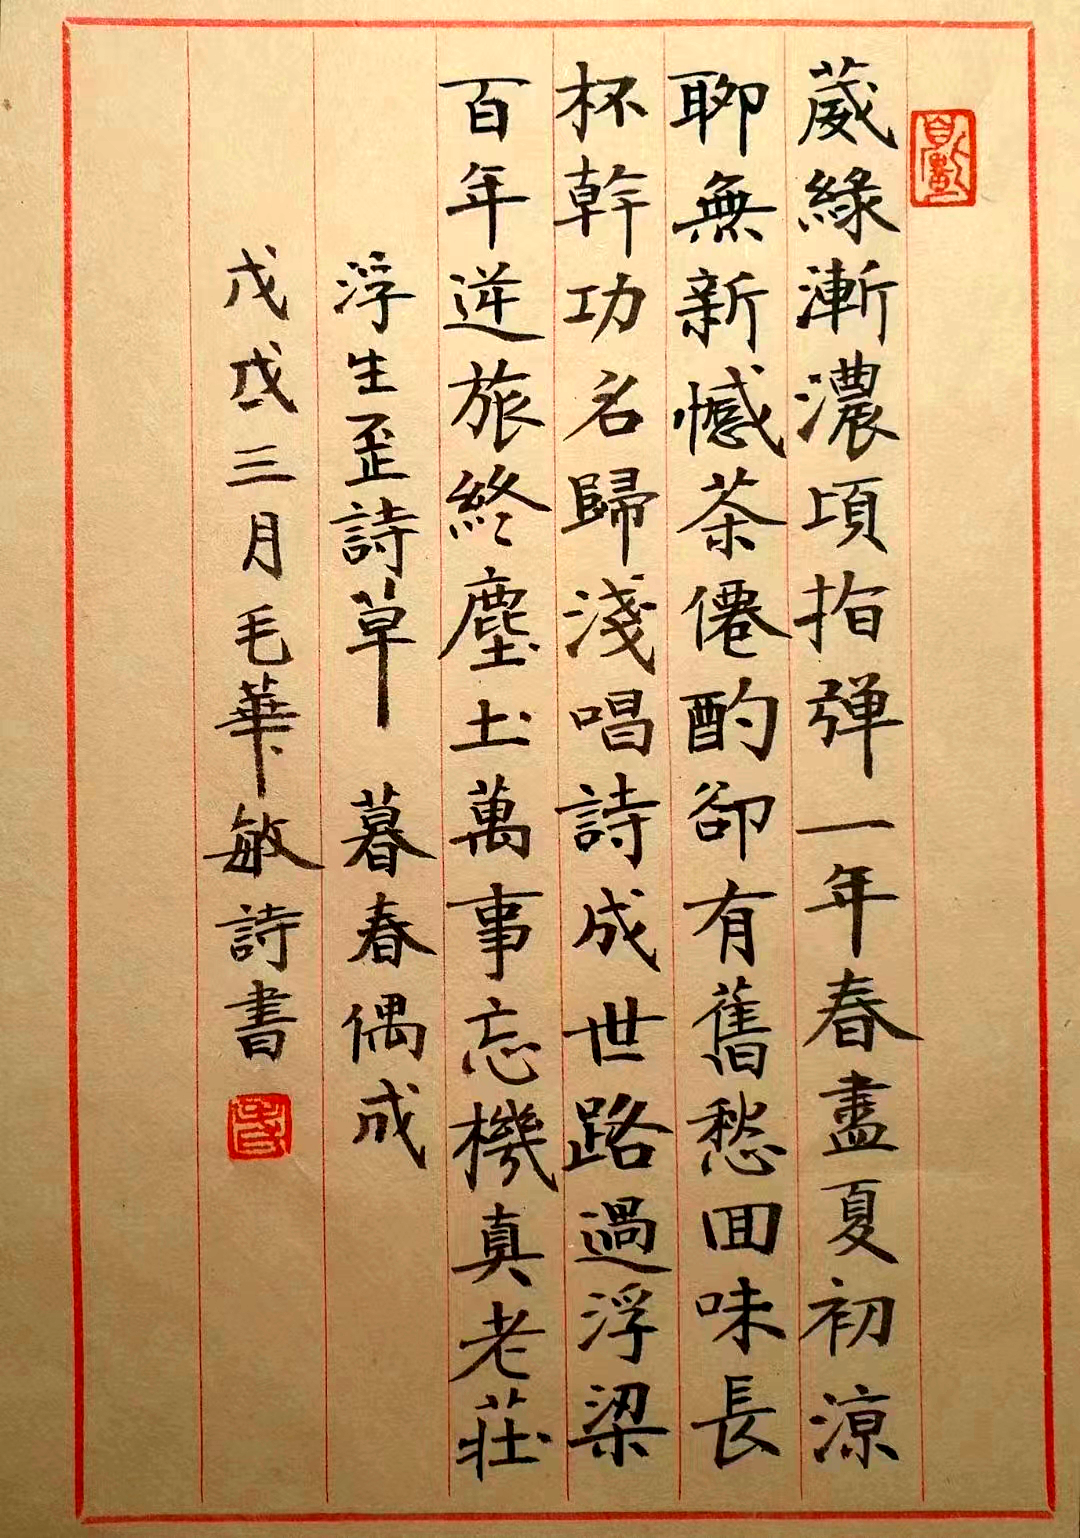 葳綠漸濃頃指彈一年春盡夏初涼
聊無新憾茶僊酌卻有舊愁回味長
杯幹功名歸淺唱詩成世路過浮梁
百年逆旅終塵土萬事忘機真老莊
浮生歪詩草 暮春偶成
戊戌三月毛華敏詩書